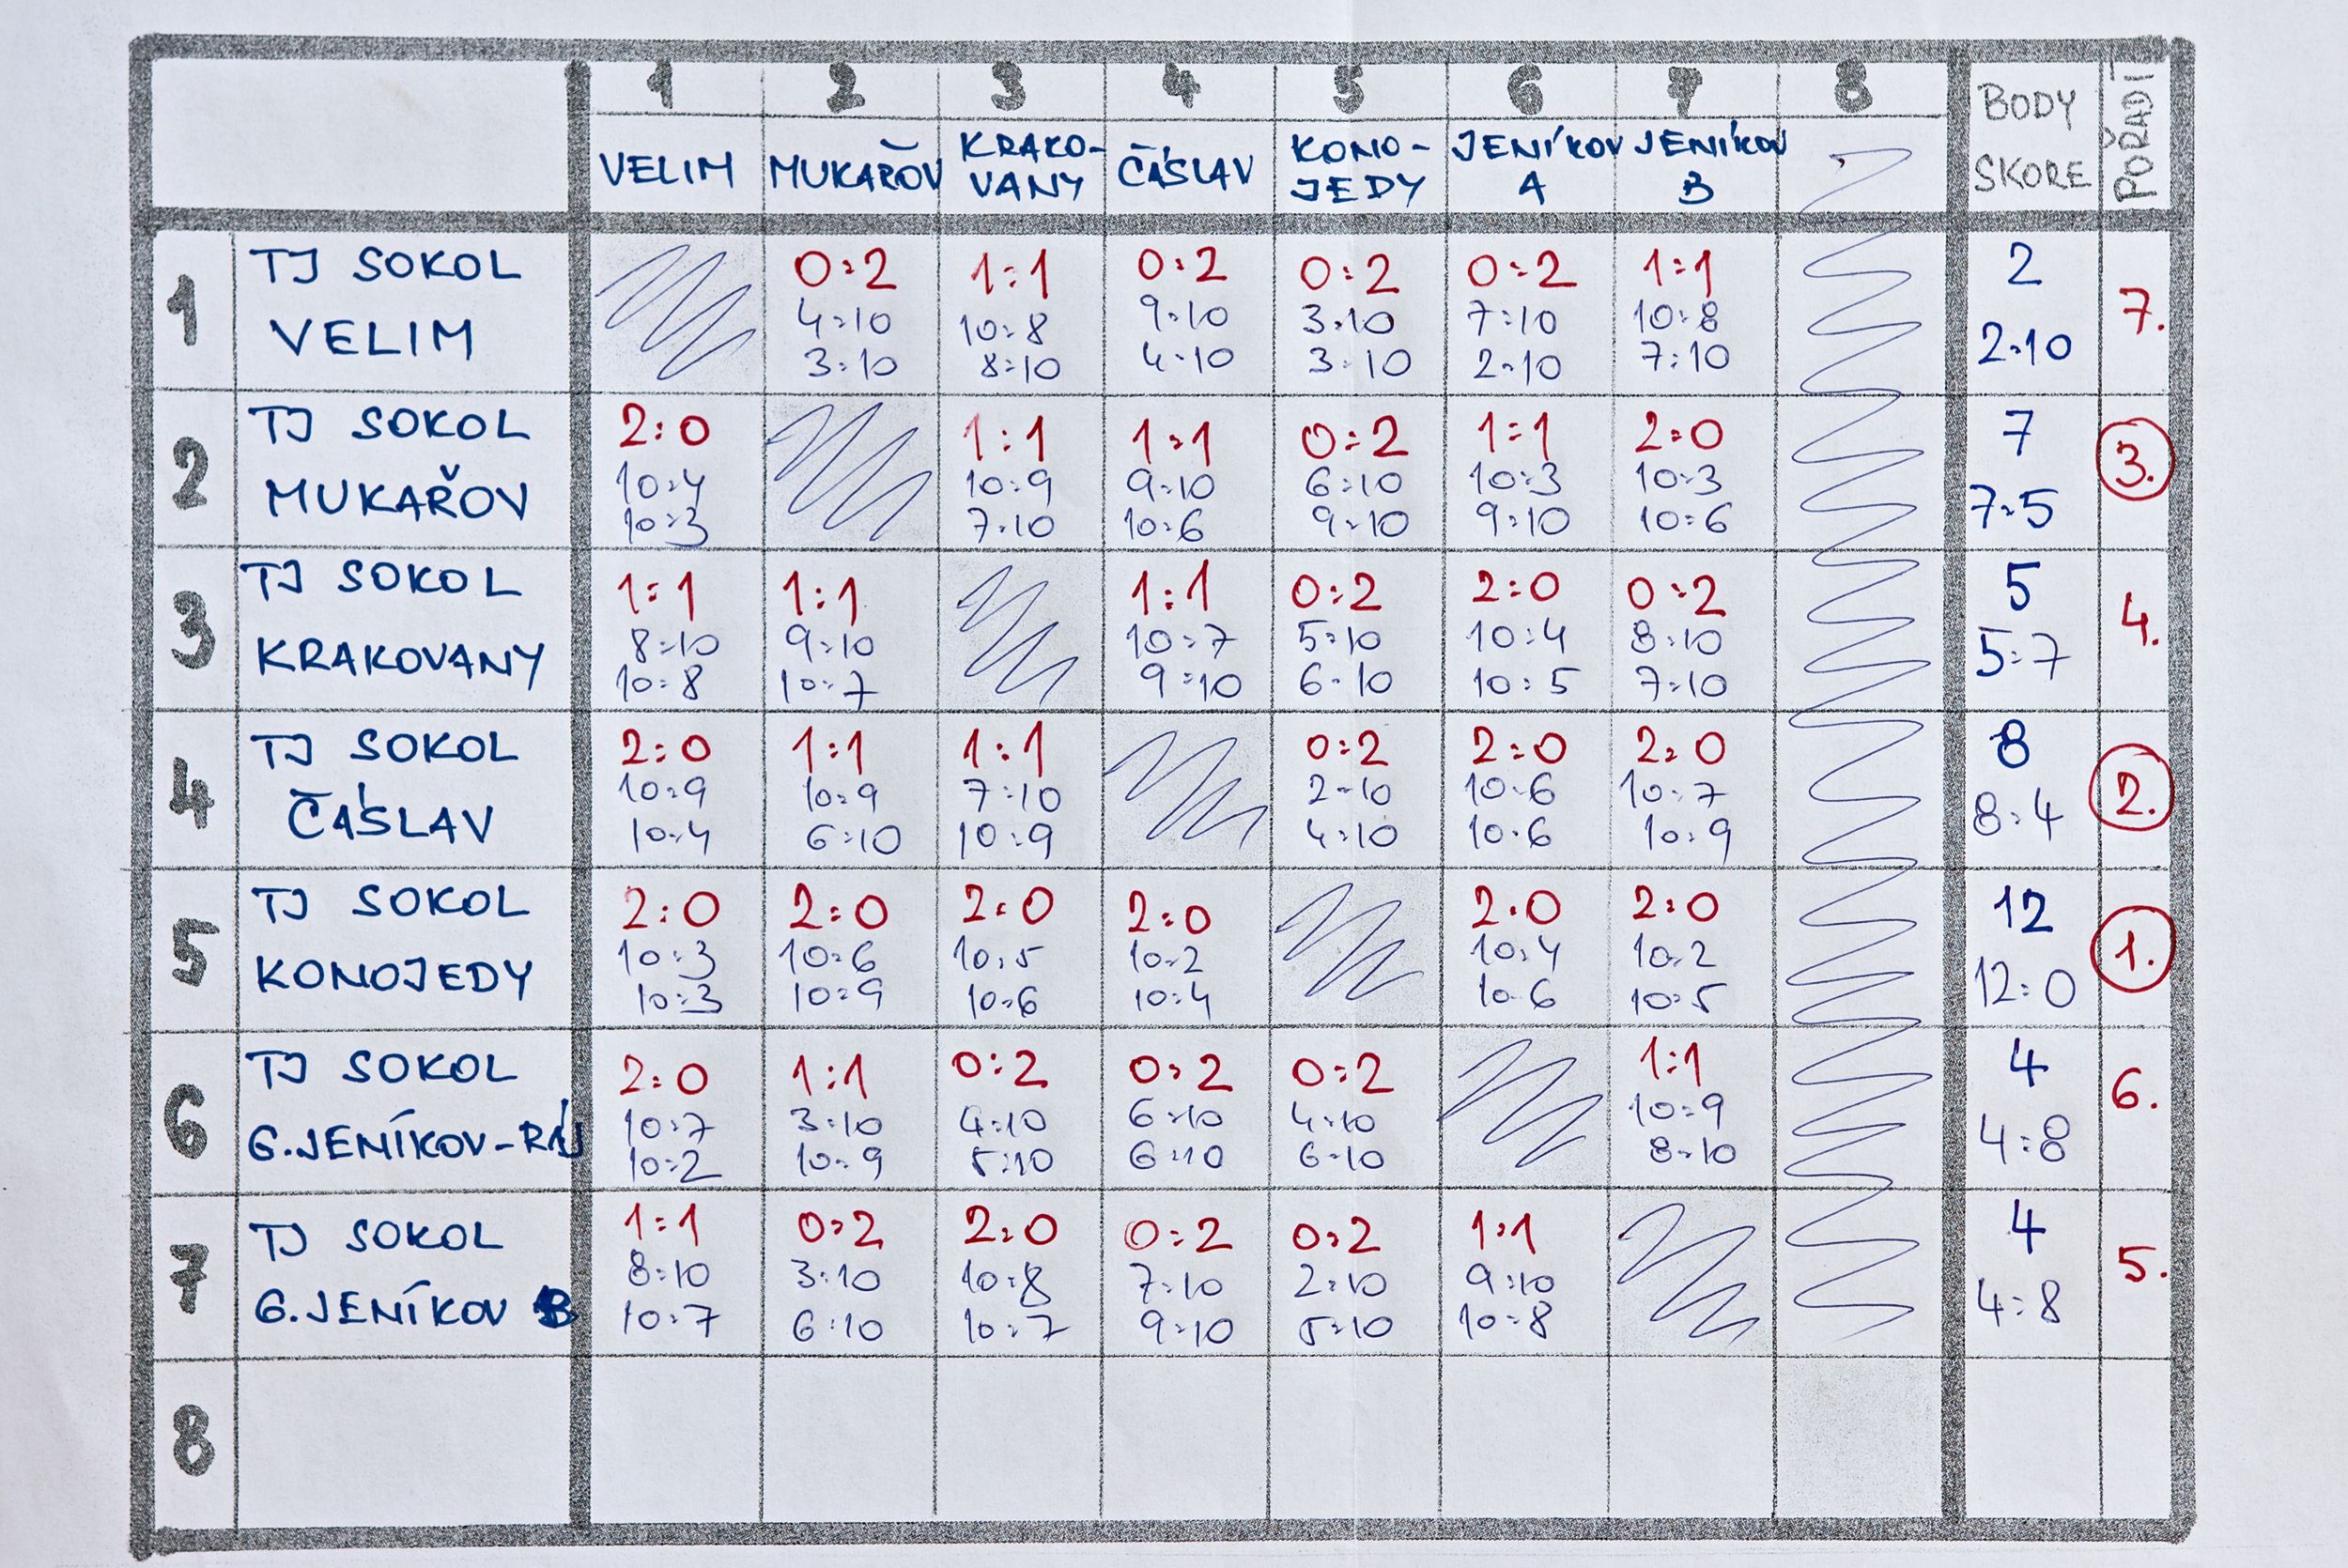 1 2 3 4 5 6 7 8 BODY SKORE POŘADÍ
VELIM MUKAŘOV KRAKO-VANY ČÁSLAV KONO-JEDY JENÍKOV A JENÍKOV B
1 TJ SOKOL VELIM
0:2 1:1 0:2 0:2 0:2 1:1 2
4:10 10:8 9:10 3:10 7:10 10:8
3:10 8:10 4:10 3:10 2:10 7:10 2:10 7.
2 TJ SOKOL MUKAŘOV
2:0 1:1 1:1 0:2 1:1 2:0 7
10:4 10:9 9:10 6:10 10:3 10:3
10:3 7:10 10:6 9:10 9:10 10:6 7:5 3.
3 TJ SOKOL KRAKOVANY
1:1 1:1 1:1 0:2 2:0 0:2 5
8:10 9:10 10:7 5:10 10:4 8:10
10:8 10:7 9:10 6:10 10:5 7:10 5:7 4.
4 TJ SOKOL ČÁSLAV
2:0 1:1 1:1 0:2 2:0 2:0 8
10:9 10:9 7:10 2:10 10:6 10:7
10:4 6:10 10:9 4:10 10:6 10:9 8:4 2.
5 TJ SOKOL KONOJEDY
2:0 2:0 2:0 2:0 2:0 2:0 12
10:3 10:6 10:5 10:2 10:4 10:2
10:3 10:9 10:6 10:4 10:6 10:5 12:0 1.
6 TJ SOKOL G.JENÍKOV-RÁJ
2:0 1:1 0:2 0:2 0:2 1:1 4
10:7 3:10 4:10 6:10 4:10 10:9
10:2 10:9 5:10 6:10 6:10 8:10 4:8 6.
7 TJ SOKOL G.JENÍKOV B
1:1 0:2 2:0 0:2 0:2 1:1 4
8:10 3:10 10:8 7:10 2:10 9:10
10:7 6:10 10:7 9:10 5:10 10:8 4:8 5.
8